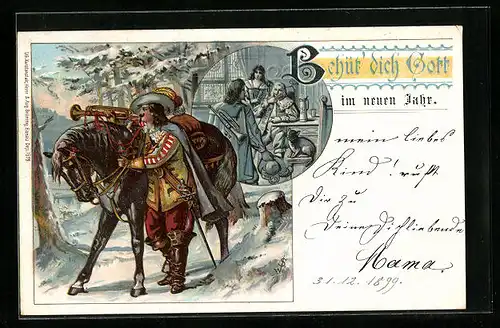 Behüt' dich Gott
im neuen Jahr.
mein liebes
Kind! ruft
Dir zu
Deine Dichliebende
Mama.
31.12.1899.